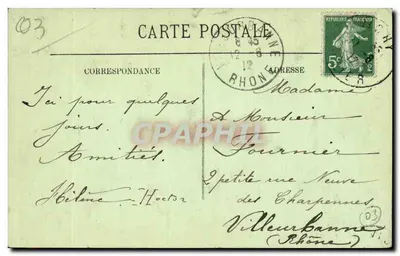 03
CARTE POSTALE
CORRESPONDANCE
ADRESSE
8 45
12 - 8
12
RHONE
REPUBLIQUE FRANÇAISE
5c
Ici pour quelques
jours.
Amitiés.
Hélène - Hector
Madame
A Monsieur
Fournier
2 petite rue Neuve
des Charpennes
Villeurbanne
(Rhône)
03
CPAPHIL